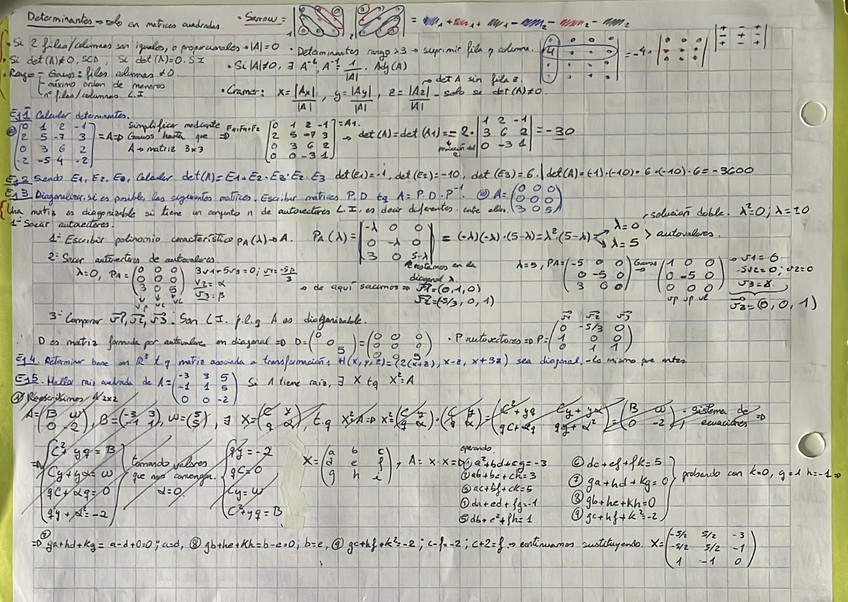 Determinantes → solo en matrices cuadradas
· Sarrus =
· Si 2 filas/columnas son iguales, o proporcionales → |A| = 0
· Determinantes rango ≥3 → suprimir fila y columna.
= -4 ·
· Si det(A)≠0, SCD, Si det(A)=0. SI
· Si |A|≠0, ∃ A⁻¹, A⁻¹ = 1/|A| · Adj(A)
· Rango - Gauss: filas, columnas ≠0
máximo orden de menores
nº filas/columnas L.I.
· Cramer: x = |Ax|/|A|, y = |Ay|/|A|, z = |Az|/|A| → solo se det(A)≠0.
Ej 1 Calcular determinantes.
0 1 2 -1
2 5 -7 3
0 3 6 2
-2 -5 4 -2
= A ⇒ Simplificar mediante Gauss hasta que A → matriz 3x3
0 1 2 -1
2 5 -7 3
0 3 6 2
0 0 -3 1
= A1.
⇒ det(A) = det(A1) = -2 ·
1 2 -1
3 6 2
0 -3 1
= -30
Ej 2 Siendo E1, E2, E3, calcular det(A) = E1·E2·E3·E2·E3 det(E1) = -1, det(E2) = -10, det(E3) = 6. det(A) = (-1)·(-10)·6·(-10)·6 = -3600
Ej 3 Diagonalizar, si es posible, las siguientes matrices. Escribir matrices P, D tq A = P·D·P⁻¹. A =
0 0 0
0 0 0
3 0 5
Una matriz es diagonizable si tiene un conjunto n de autovectores L.I. es decir diferentes entre ellos.
1- Sacar autovectores.
1- Escribir polinomio característico PA(λ) → A. PA(λ) =
-λ 0 0
0 -λ 0
3 0 5-λ
= (-λ)(-λ)·(5-λ) = λ²(5-λ)
λ=0
λ=5
autovalores.
solución doble. λ²=0; λ=±0
2- Sacar autovectores de autovalores
λ=0, PA =
0 0 0
0 0 0
3 0 5
3v1+5v3=0; v1 = -5β/3
v2 = α
v3 = β
→ de aquí sacamos → v1 = (0,1,0)
v2 = (-5/3, 0, 1)
λ=5, PA =
-5 0 0
0 -5 0
3 0 0
Gauss
1 0 0
0 -5 0
0 0 0
→ v1 = 0
-5v2 = 0; v2 = 0
v3 = γ
v3 = (0, 0, 1)
3- Comparar v1, v2, v3. Son L.I. p.l.q A es diagonizable.
D es matriz formada por autovalores en diagonal ⇒ D =
0 0 0
0 0 0
0 0 5
· P autovectores ⇒ P =
0 -5/3 0
1 0 0
0 1 1
Ej 4. Determinar base en R³ t.q matriz asociada a transformación: H(x,y,z) = (2(x+z), x-z, x+3z) sea diagonal. → lo mismo que antes.
Ej 5. Hallar raíz cuadrada de A =
-3 3 5
-1 1 5
0 0 -2
Si A tiene raíz, ∃ X tq X² = A
Reescribimos A 2x2
· sistema de ecuaciones ⇒
C² + yq = B
Cy + yα = w
qC + αq = 0
qy + α² = -2
tomando valores que nos convengan.
α = 0.
qy = -2
qC = 0
Cy = w
C² + yq = B
X =
a b c
d e f
g h i
, A = X·X ⇒
operando
① a²+bd+cg = -3
② ab+be+ch = 3
③ ac+bf+ck = 5
④ da+ed+fg = -1
⑤ db+e²+fh = 1
⑥ dc+ef+fk = 5
⑦ ga+hd+kg = 0
⑧ gb+he+kh = 0
⑨ gc+hf+k² = -2
probando con k=0, g=1 h=-1 ⇒
⇒ ⑦ ga+hd+kg = a-d+0=0; a=d, ⑧ gb+he+kh = b-e=0; b=e, ⑨ gc+hf+k²=-2; c-f=-2; c+2=f → continuamos sustituyendo. X =
-5/2 5/2 -3
-5/2 5/2 -1
1 -1 0